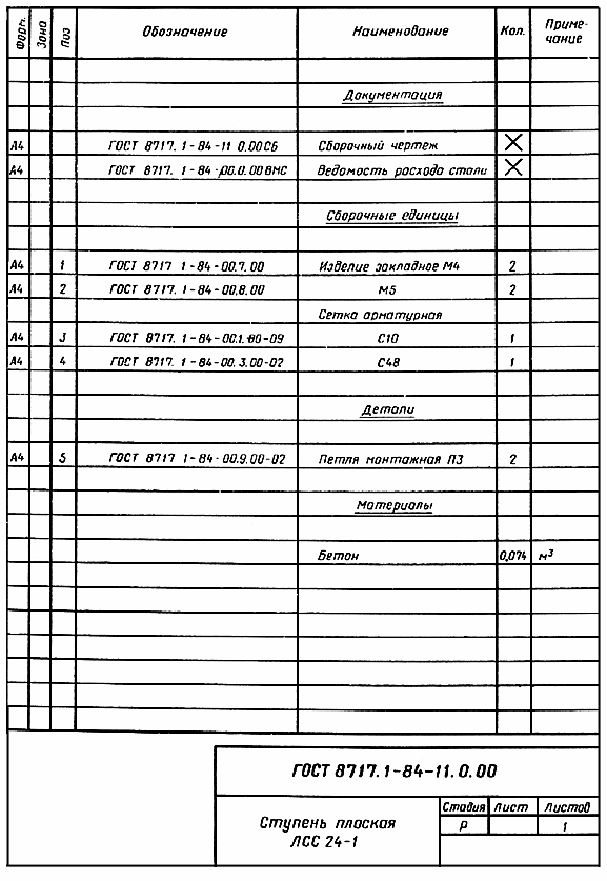 Форм. Зона Поз Обозначение Наименование Кол. Приме-
чание
Документация
А4 ГОСТ 8717. 1-84-11 0.00СБ Сборочный чертеж X
А4 ГОСТ 8717. 1-84-00.0.00ВМС Ведомость расхода стали X
Сборочные единицы
А4 1 ГОСТ 8717 1-84-00.7.00 Изделие закладное М4 2
А4 2 ГОСТ 8717. 1-84-00.8.00 М5 2
Сетка арматурная
А4 3 ГОСТ 8717. 1-84-00.1.00-09 С10 1
А4 4 ГОСТ 8717. 1-84-00.3.00-02 С48 1
Детали
А4 5 ГОСТ 8717 1-84-00.9.00-02 Петля монтажная П3 2
Материалы
Бетон 0,074 м³
ГОСТ 8717.1-84-11.0.00
Ступень плоская
ЛСС 24-1
Стадия Лист Листов
Р 1